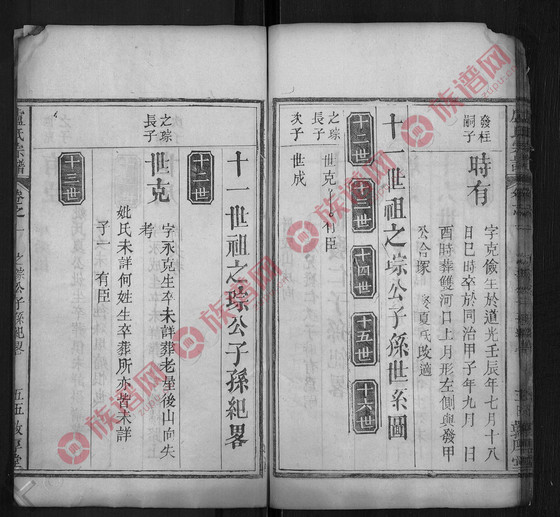 發枉
嗣子
時有
字克儉生於道光壬辰年七月十八
日巳時卒於同治甲子年九月 日
酉時葬雙河口上月形左側與發甲
公合塚 娶夏氏改適
十一世祖之琮公子孫世系圖
十二世 十三世 十四世 十五世 十六世
之琮
長子 世克 有臣
次子 世成
十一世祖之琮公子孫紀畧
十二世
之琮
長子
世克
字永克生卒未詳葬老屋後山向失
考
妣氏未詳何姓生卒葬所亦皆未詳
子一 有臣
十三世
盧氏宗譜 卷之一 之琮公子孫紀畧 五五 敦厚堂
族谱网
族谱网
族谱网
族谱网